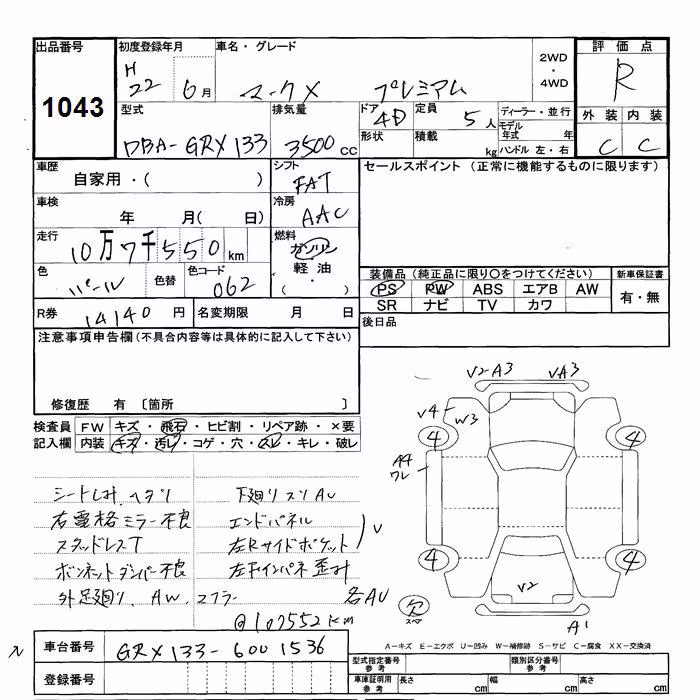 出品番号 初度登録年月 車名・グレード 2WD・4WD 評価点
1043 H22 6月 マークX プレミアム R
型式 排気量 ドア 定員 ディーラー・並行 外装 内装
DBA-GRX133 3500cc 4D 5人 モデル年式 年 C C
形状 積載 kg ハンドル 左・右
車歴 シフト セールスポイント (正常に機能するものに限ります)
自家用・( ) FAT
車検 冷房
年 月( 日) AAC
走行 燃料
10万7千550km ガソリン
色 色替 色コード 軽油 装備品 (純正品に限り〇をつけてください) 新車保証書
パール 062 ( ・ ) PS PW ABS エアB AW 有・無
SR ナビ TV カワ
R券 14140円 名変期限 月 日 後日品
注意事項申告欄(不具合内容等は具体的に記入して下さい)
修復歴 有 〔箇所 〕
検査員 FW キズ・飛石・ヒビ割・リペア跡・×要
記入欄 内装 キズ・汚レ・コゲ・穴・スレ・キレ・破レ
V2A3 VA3
V4 W3
4 4
A4
ワレ
4 4
V2
欠
スペ
A1
シートしみ、ヘタリ 下廻りスリAU
右電格ミラー不良 エンドパネル
スタッドレスT 左Rサイドポケット V
ボンネットダンパー不良 左Fインパネ歪み
外足廻り、AW、マフラー 各AU
@107552km
車台番号 GRX133-6001536
登録番号
A－キズ E－エクボ U－凹み W－補修跡 S－サビ C－腐食 XX－交換済
型式指定番号 参考 類別区分番号 参考
車庫証明用 参考 長さ cm 幅 cm 高さ cm